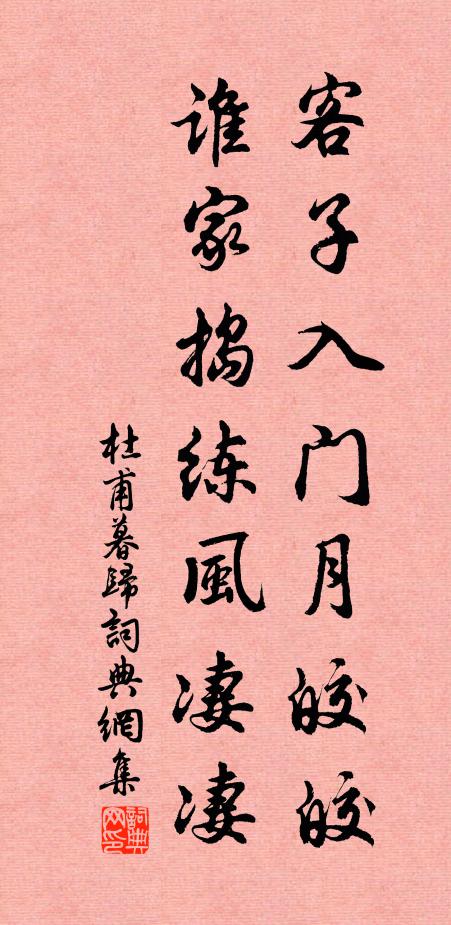 客子入门月皎皎
谁家捣练風凄凄
杜甫暮歸詞典網集
詞典网印